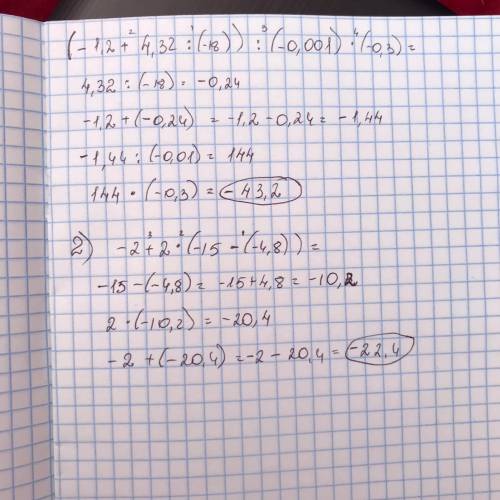 (-1,2 +² 4,32 :¹ (-18)) :³ (-0,001) ·⁴ (-0,3) =
4,32 : (-18) = -0,24
-1,2 + (-0,24) = -1,2 - 0,24 = -1,44
-1,44 : (-0,01) = 144
144 · (-0,3) = -43,2
2) -2 +³ 2 ·² (-15 -¹ (-4,8)) =
-15 - (-4,8) = -15 + 4,8 = -10,2
2 · (-10,2) = -20,4
-2 + (-20,4) = -2 - 20,4 = -22,4